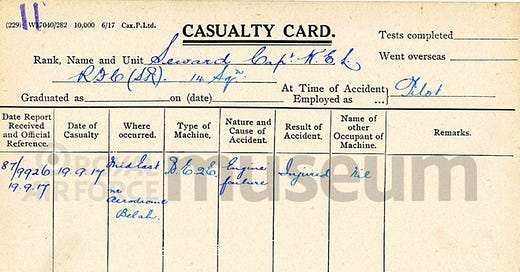 11
(229) W17040/282 10,000 6/17 Cax.P.Ltd.
CASUALTY CARD.
Tests completed
Rank, Name and Unit Seward Capt W.E.L.
Went overseas
RFC (SR). 14 Sqn.
At Time of Accident Employed as ... Pilot
Graduated as on (date)
Date Report Received and Official Reference.
Date of Casualty
Where occurred.
Type of Machine.
Nature and Cause of Accident.
Result of Accident.
Name of other Occupant of Machine.
Remarks.
87/9926 19.9.17
19.9.17
Mid East nr Aerodrome Belah.
B.E.2E.
Engine failure
Injured
Nil
ROYAL
AIR FORCE
museum